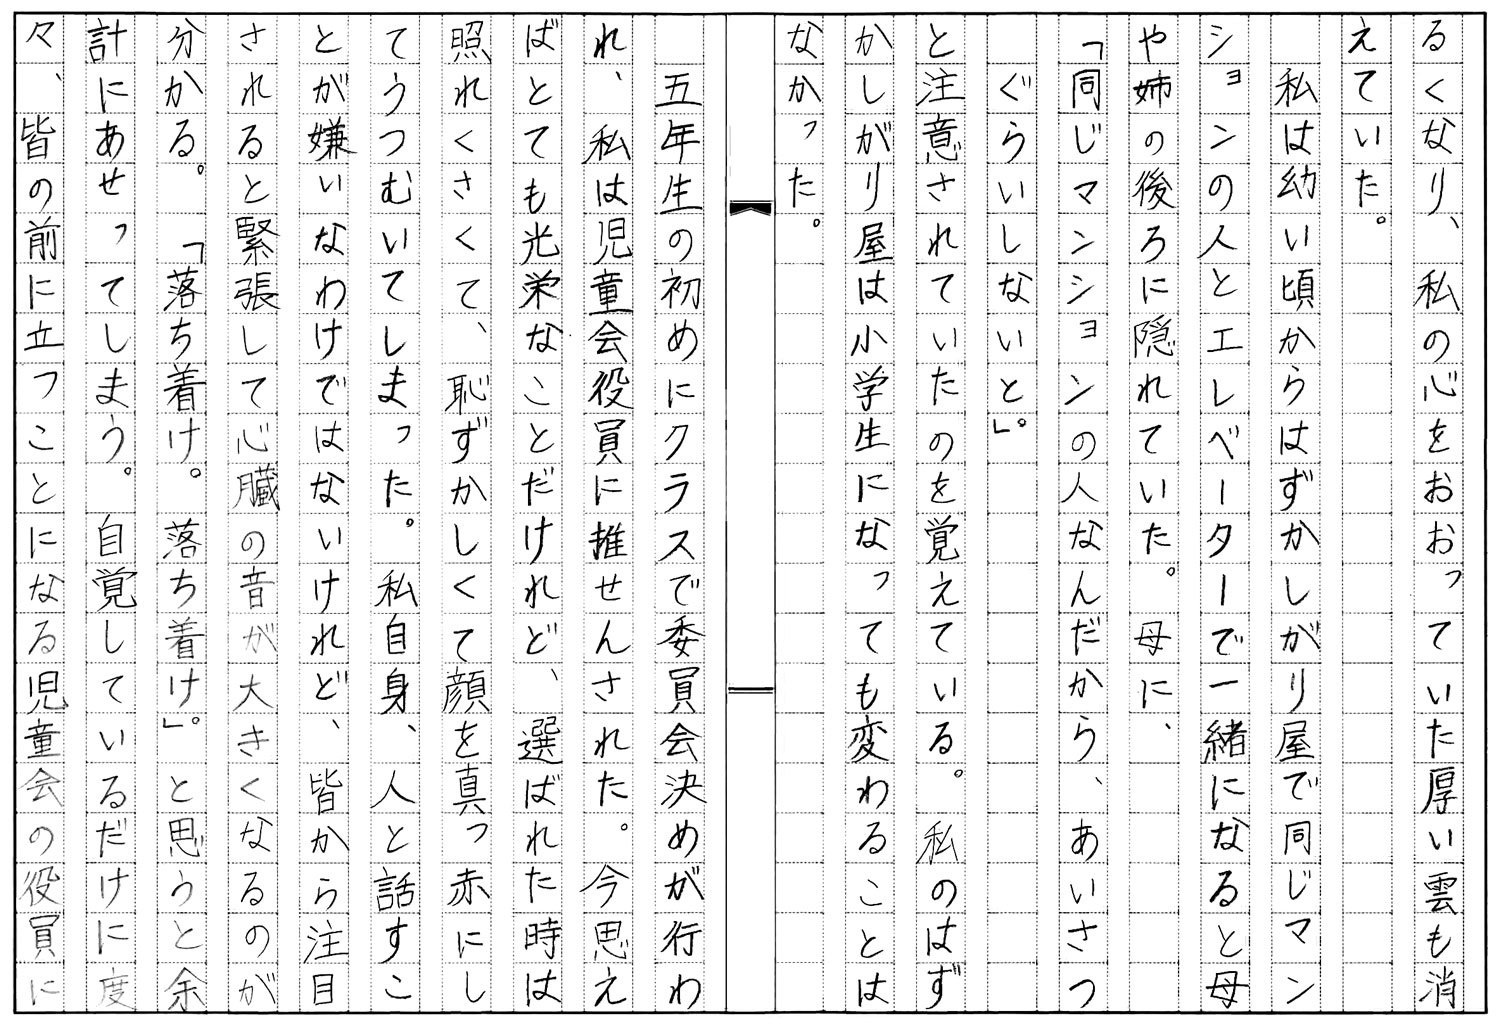 るくなり、私の心をおおっていた厚い雲も消
えていた。
私は幼い頃からはずかしがり屋で同じマン
ションの人とエレベーターで一緒になると母
や姉の後ろに隠れていた。母に、
「同じマンションの人なんだから、あいさつ
ぐらいしないと」。
と注意されていたのを覚えている。私のはず
かしがり屋は小学生になっても変わることは
なかった。
五年生の初めにクラスで委員会決めが行わ
れ、私は児童会役員に推せんされた。今思え
ばとても光栄なことだけれど、選ばれた時は
照れくさくて、恥ずかしくて顔を真っ赤にし
てうつむいてしまった。私自身、人と話すこ
とが嫌いなわけではないけれど、皆から注目
されると緊張して心臓の音が大きくなるのが
分かる。「落ち着け。落ち着け」。と思うと余
計にあせってしまう。自覚しているだけに度
々、皆の前に立つことになる児童会の役員に